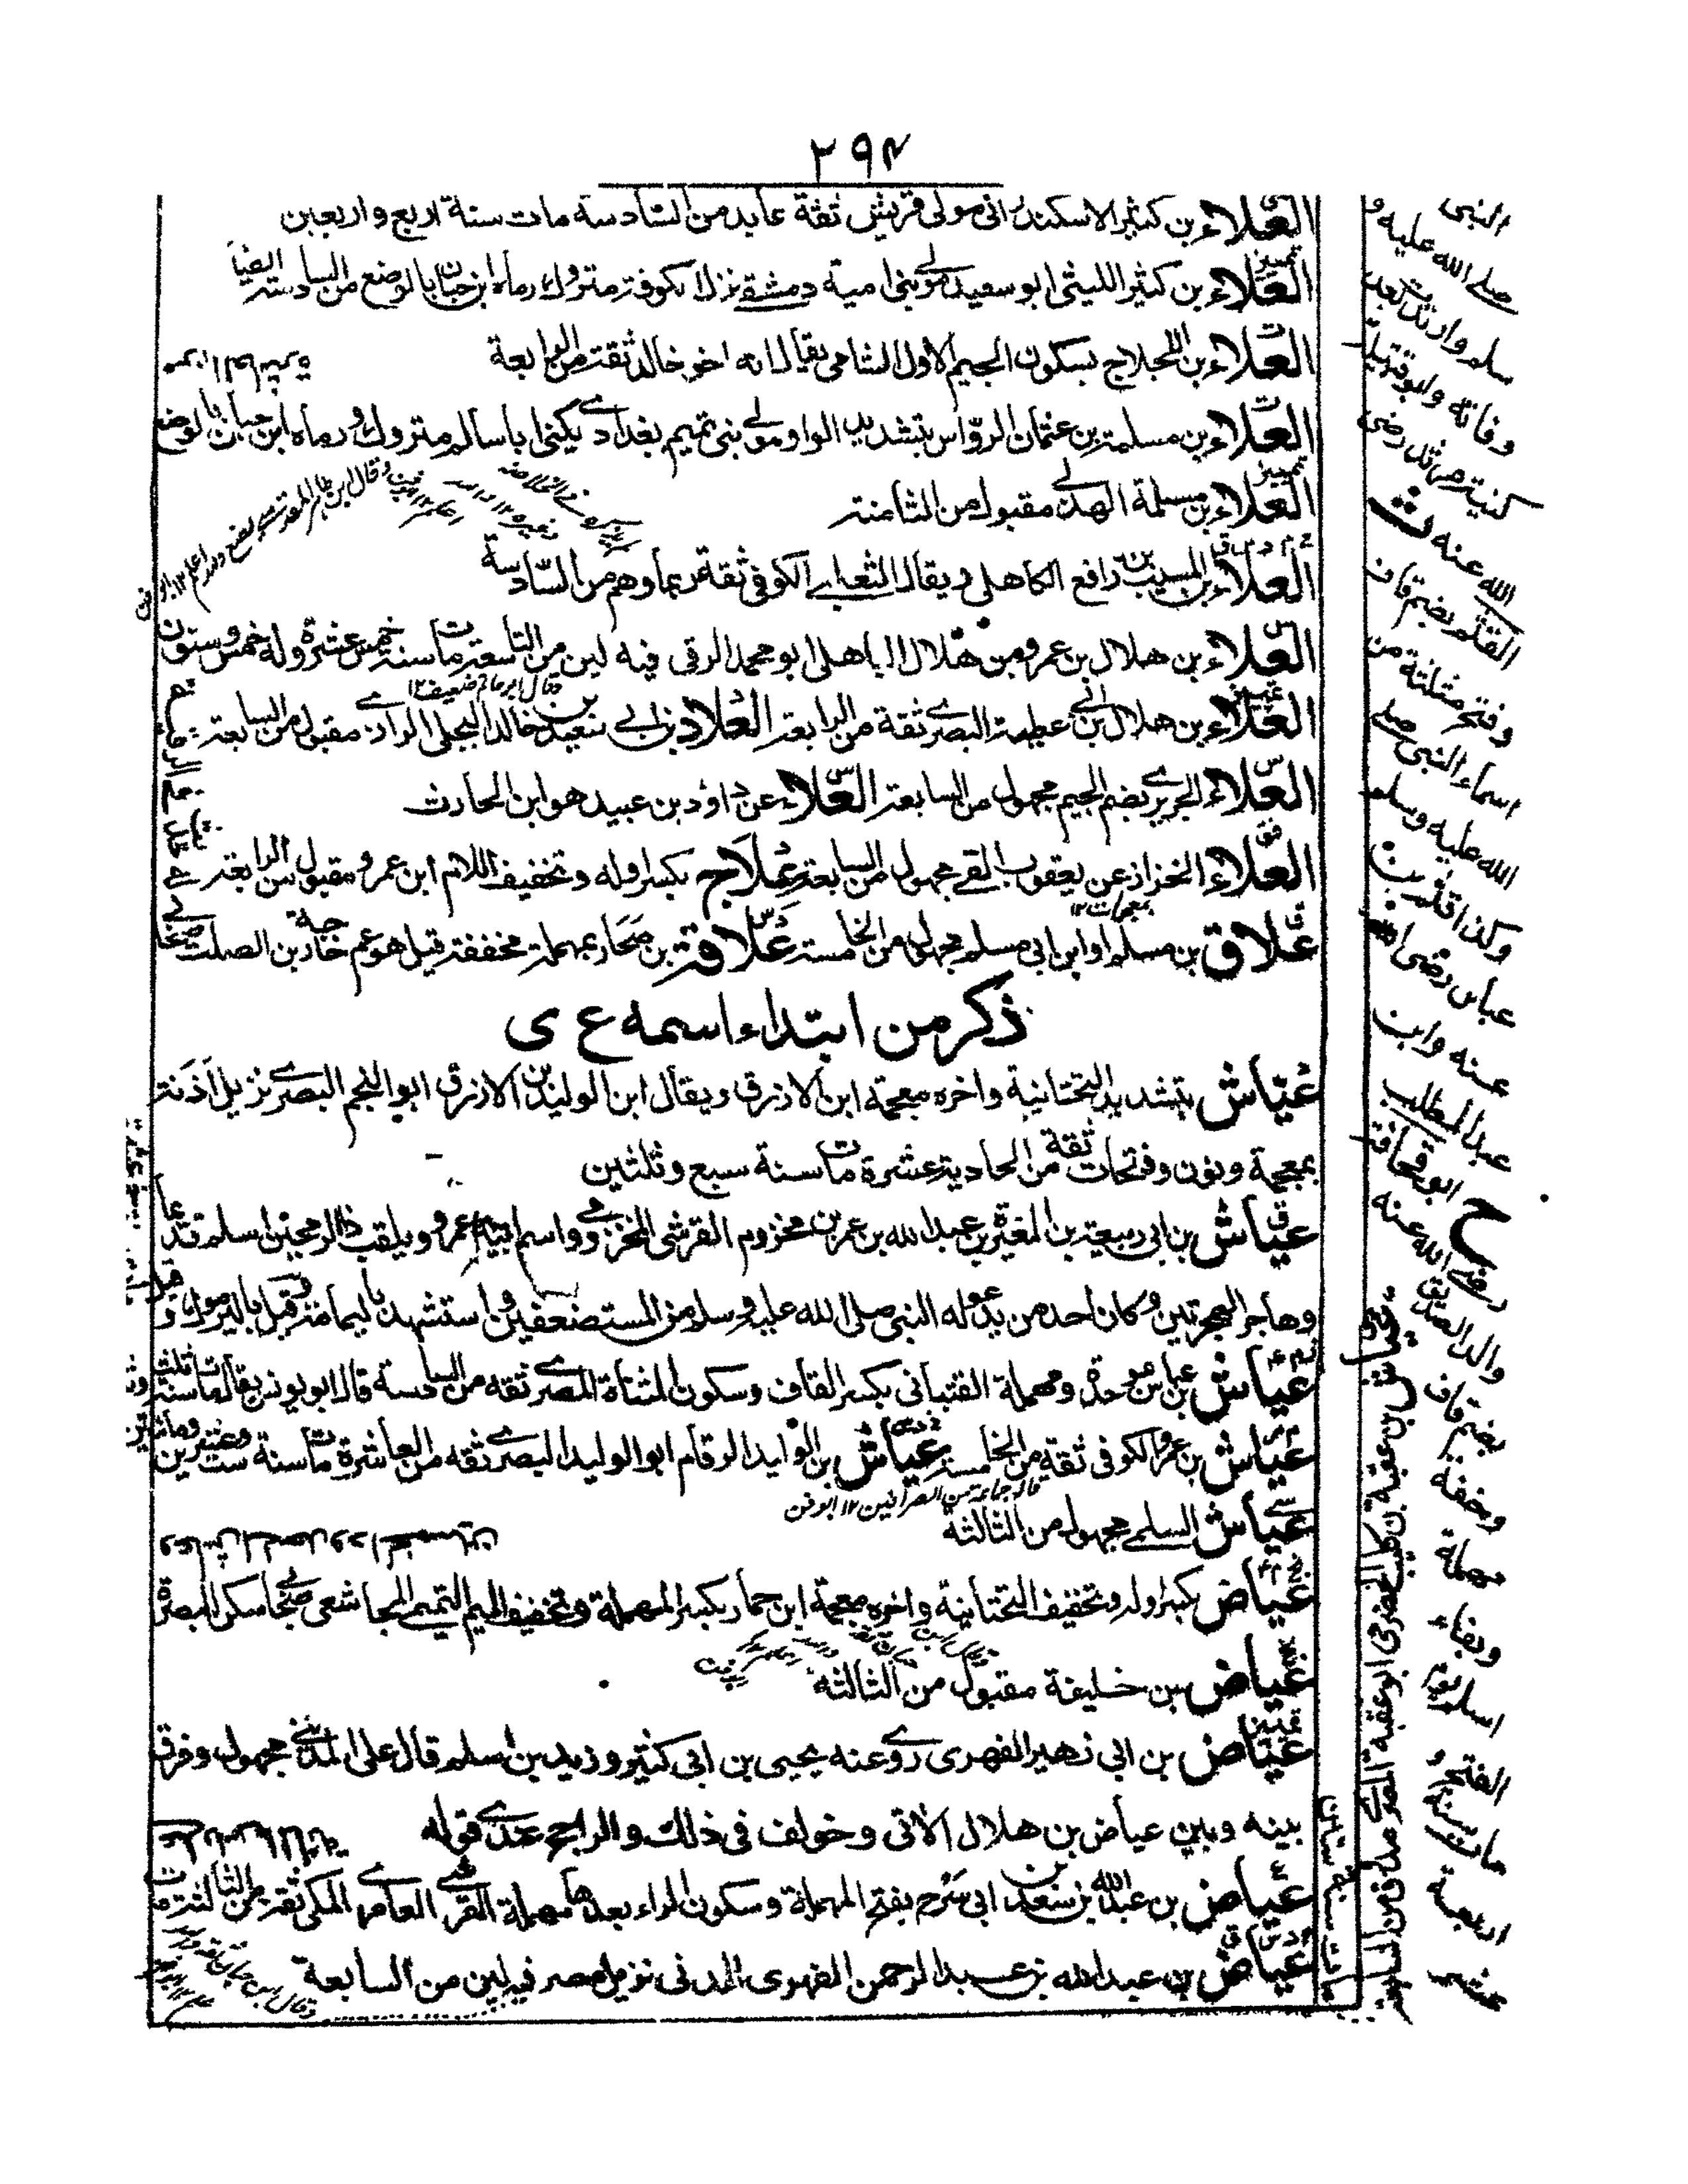 ٢٩٤
العلاء بن كثير الاسكندرانى مولى قريش ثقة عابد من السادسة مات سنة اربع واربعين
العلاء بن كثير الليثى ابو سعيد مولى بنى امية دمشقى نزل الكوفة متروك رماه ابن حبان بالوضع من السادسة ايضاً
العلاء بن اللجلاج بسكون الجيم الاول الشامى يقال انه اخو خالد ثقة من الرابعة
العلاء بن مسلمة بن عثمان الروّاس بتشديد الواو مولى بنى تميم بغدادي يكنى ابا سالم متروك ورماه ابن حبان بالوضع
العلاء بن مسلمة الهذلي مقبول من الثامنة
العلاء بن المسيب بن رافع الكاهلى ويقال الثعلبي الكوفى ثقة ربما وهم من السّادسة
العلاء بن هلال بن عمرو بن هلال الباهلى ابو محمد الرقى فيه لين من التاسعة مات سنة خمس عشرة وله خمس وستون
العلاء بن هلال بن ابي عطية البصري ثقة من الرابعة العلاء بن ابي سعيد بن خالد البجلى الرازي مقبول من السابعة
العلاء الجريري بضم الجيم مجهول من السابعة العلاء عن داؤد بن عبيد هو ابن الحارث
العلاء الخزاز عن يعقوب القمي مجهول من السابعة عِلاج بكسر اوله وتخفيف اللام ابن عمرو مقبول من الرابعة
علاق بن مسلم او ابن ابى مسلم مجهول من الخامسة عِلاقة بن صحار بمهملة مخففة قيل هو عم خارجة بن الصلت صحابي
ذكر من ابتداء اسمه ع ى
عيّاش بتشديد التحتانية واخره معجمة ابن الازرق ويقال ابن الوليد بن الازرق ابو النجم البصري نزيل أذنة
بمعجمة ونون وفتحات ثقة من الحادية عشرة مات سنة سبع وثلثين
عيّاش بن ابى ربيعة بن المغيرة بن عبد الله بن عمر بن مخزوم القرشى المخزومي واسم ابيه عمرو ويلقب ذا الرمحين اسلم قديماً
وهاجر الهجرتين وكان احد من يدعو له النبى صلى الله عليه وسلم من المستضعفين واستشهد باليمامة وقيل باليرموك
عيّاش بن عباس بموحدة ومهملة القتبانى بكسر القاف وسكون المثناة المصري ثقة من السادسة قال ابو يونس يقال مات سنة ثلث وثلثين ومائة
عيّاش بن عمرو الكوفى ثقة من الخامسة عيّاش بن الوليد الرقام ابو الوليد البصري ثقة من العاشرة مات سنة ست وعشرين ومأتين
عيّاش السلمي مجهول من الثالثة
عياض بكسر اوله وتخفيف التحتانية واخره معجمة ابن حمار بكسر المهملة وتخفيف الميم التميمي المجاشعى صحابي سكن البصرة
عياض بن خليفة مقبول من الثالثة
عياض بن ابى زهير الفهرى روي عنه يحيى بن ابى كثير وزيد بن اسلم قال على المديني مجهول وفرق
بينه وبين عياض بن هلال الاتى وخولف فى ذلك والراجح عندي قوله
عياض بن عبد الله بن سعد بن ابى سَرْح بفتح المهملة وسكون الراء بعدها مهملة القرشي العامري المكى ثقة من الثالثة مات
عياض بن عبد الله بن عبد الرحمن الفهرى المدنى نزيل مصر فيه لين من السابعة
النبى
صلے الله عليه و
سلم وارتدت بعد
وفاته وابو قتيلة
كنيته مرثد رضى
الله عنه ث
القثم بضم قاف
وفتح مثلثة من
اسماء النبى صلے
الله عليه وسلم
وكذا قثم بن
عباس رضى الله
عنه وابن
عبد المطلب
ح ابو قحافة
رضي الله عنه
والد الصديق
بضم قاف
وخفة
مهملة
وبفاء
اسلم يوم
الفتح و
مات سنة
اربعة
عشر
عياش بن عقبة بن كليب الحضرمى ابو عقبة المصري صدوق من السابعة